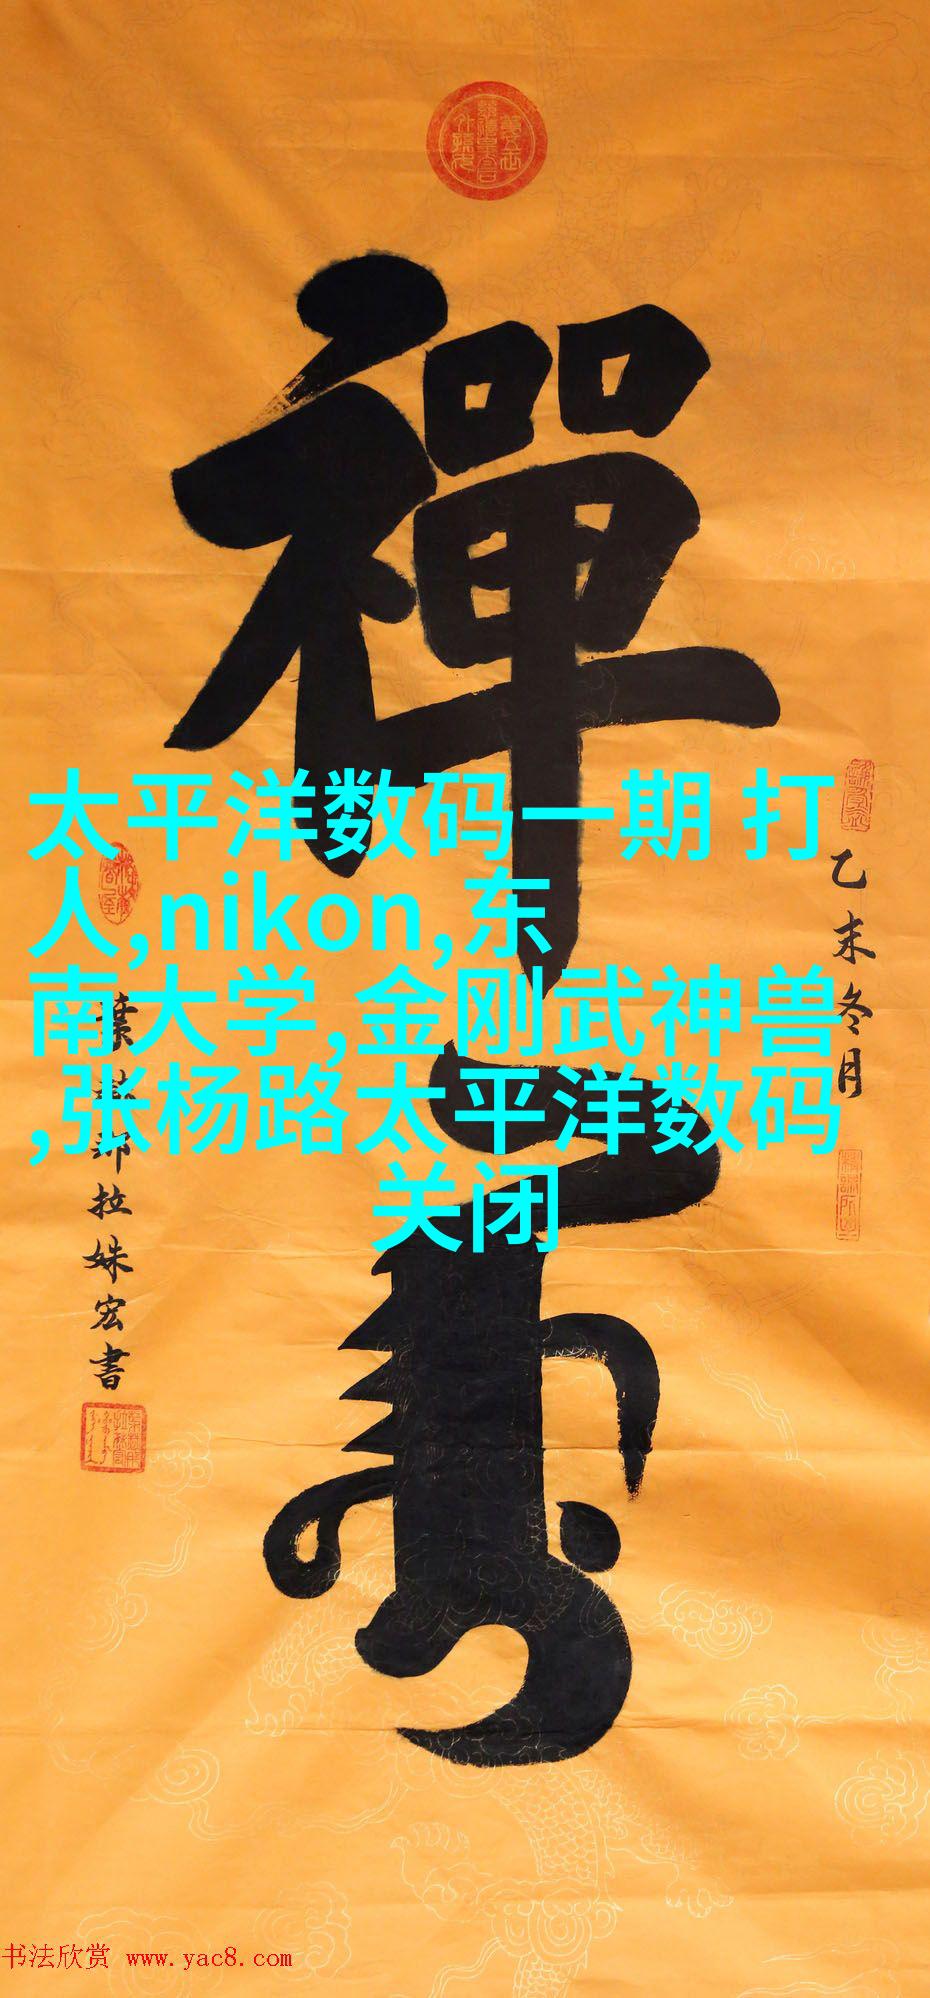 禪
太平洋数码一期 打
人,nikon,东
南大学,金刚武神兽
,张杨路太平洋数码
关闭
乙未冬月
葉赫那拉姝宏書
书法欣赏 www.yac8.com